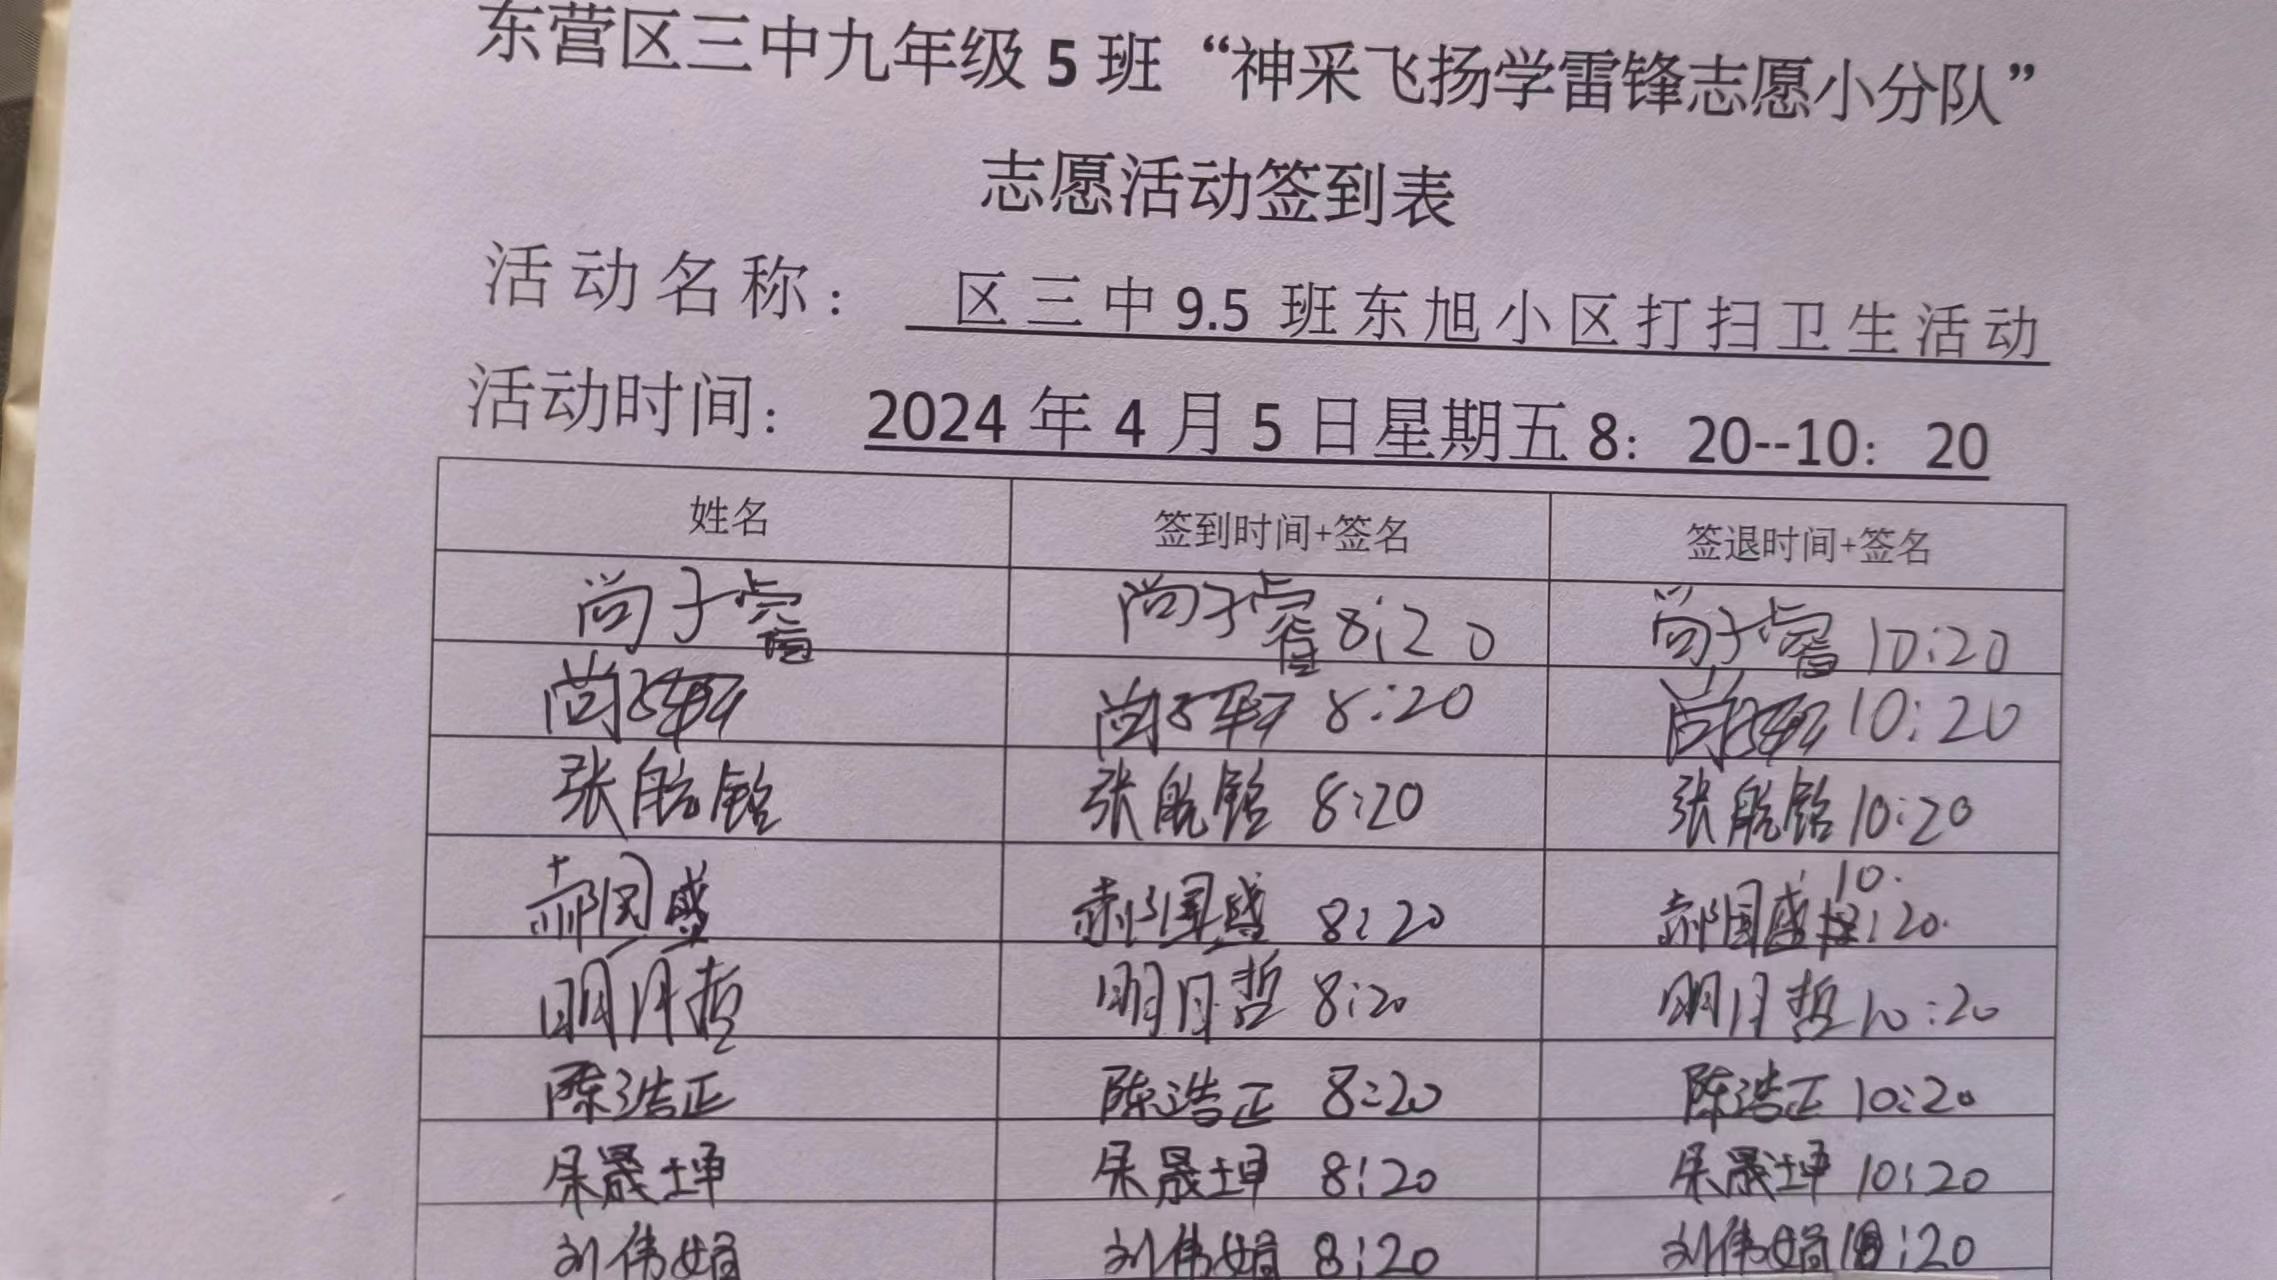 东营区三中九年级 5 班 “神采飞扬学雷锋志愿小分队”
志愿活动签到表
活动名称： 区三中9.5 班东旭小区打扫卫生活动
活动时间： 2024 年 4 月 5 日星期五 8：20--10：20
姓名 签到时间+签名 签退时间+签名
尚子睿 尚子睿 8:20 尚子睿 10:20
尚 尚 8:20 尚 10:20
张航铭 张航铭 8:20 张航铭 10:20
郝国盛 郝国盛 8:20 郝国盛 10:20
明月哲 明月哲 8:20 明月哲 10:20
陈浩正 陈浩正 8:20 陈浩正 10:20
晟坤 晟坤 8:20 晟坤 10:20
刘伟娟 刘伟娟 8:20 刘伟娟 10:20